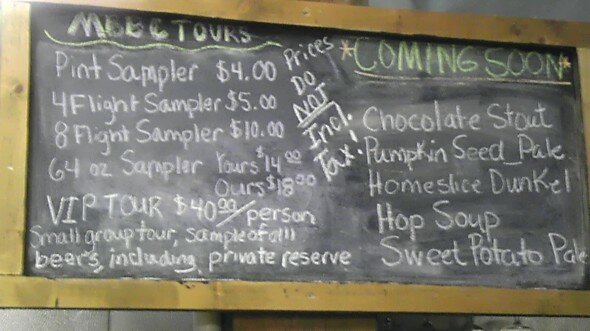 MBBC TOURS
Pint Sampler $4.00
4 Flight Sampler $5.00
8 Flight Sampler $10.00
64 oz Sampler Yours $14.00
Ours $18.00
VIP TOUR $40.00/person
Small group tour, sample of all
beers, including private reserve
Prices
DO
NOT
Incl.
Tax!
*COMING SOON*
Chocolate Stout
Pumpkin Seed Pale
Homeslice Dunkel
Hop Soup
Sweet Potato Pale